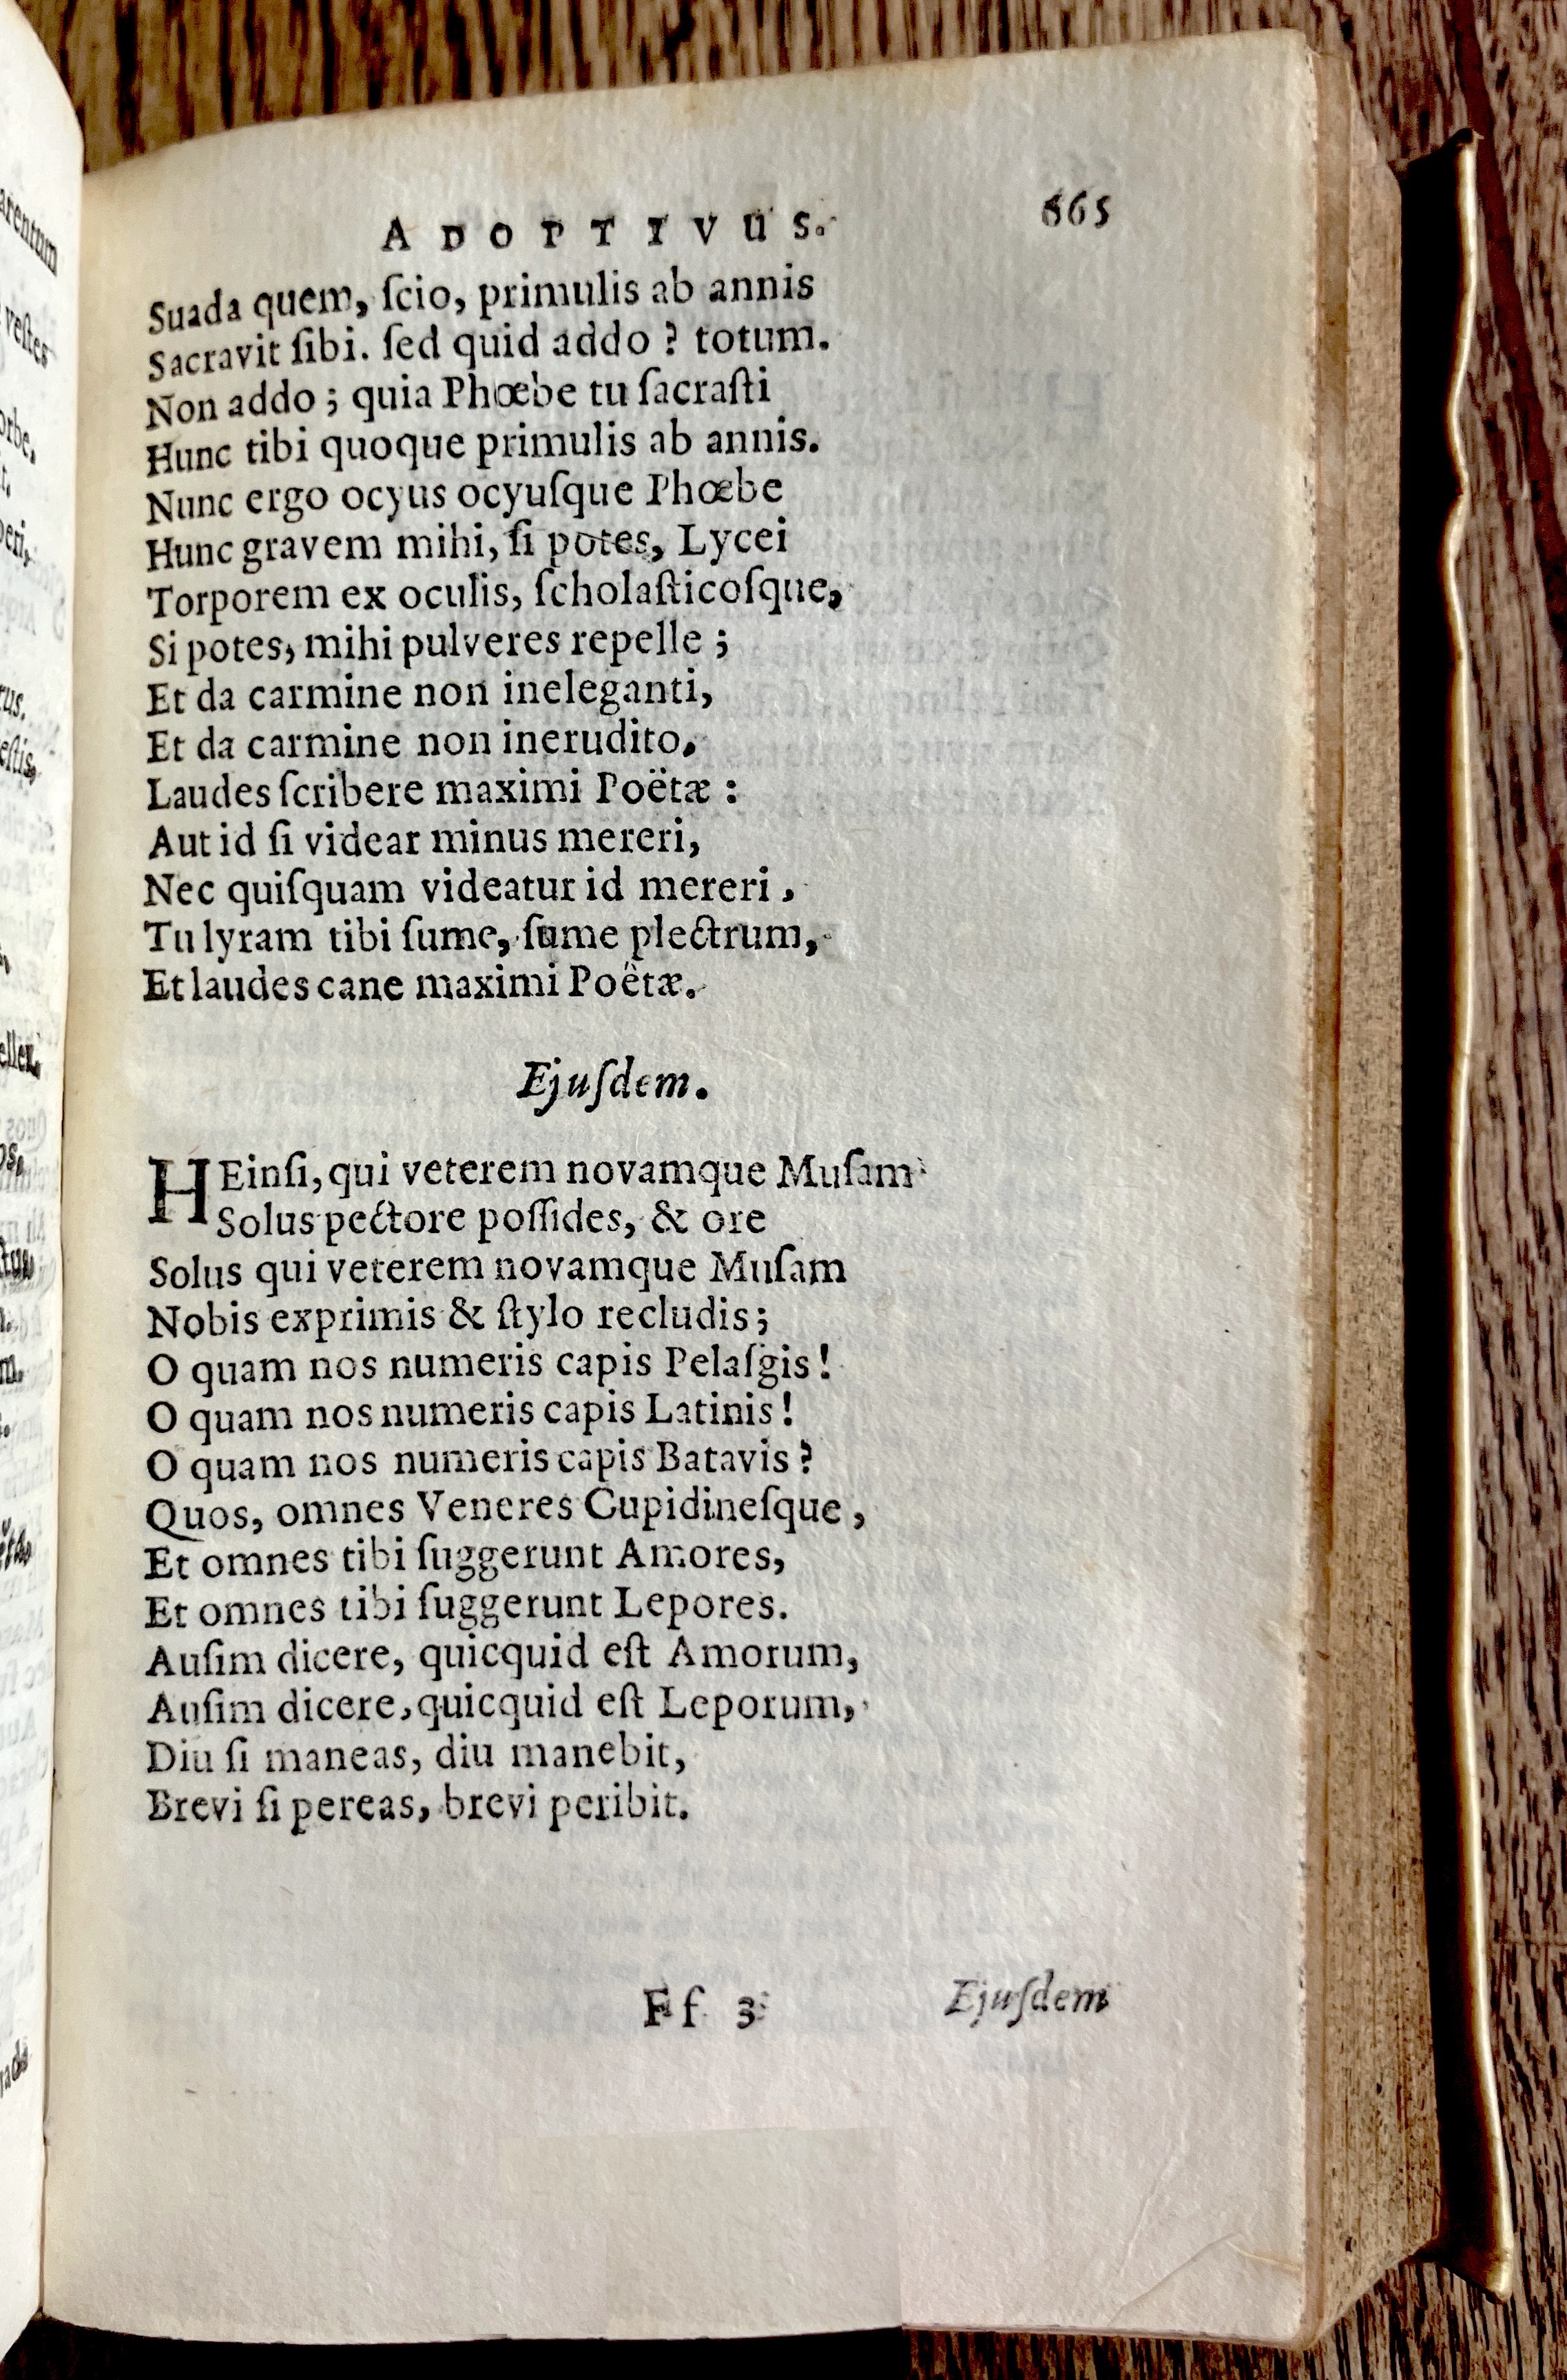 ADOPTIVUS.
665
Suada quem, ſcio, primulis ab annis
Sacravit ſibi. ſed quid addo ? totum.
Non addo ; quia Phœbe tu ſacraſti
Hunc tibi quoque primulis ab annis.
Nunc ergo ocyus ocyuſque Phœbe
Hunc gravem mihi, ſi potes, Lycei
Torporem ex oculis, ſcholaſticoſque,
Si potes, mihi pulveres repelle ;
Et da carmine non ineleganti,
Et da carmine non inerudito,
Laudes ſcribere maximi Poëtæ :
Aut id ſi videar minus mereri,
Nec quiſquam videatur id mereri,
Tu lyram tibi ſume, ſume plectrum,
Et laudes cane maximi Poëtæ.
Ejuſdem.
HEinſi, qui veterem novamque Muſam
Solus pectore poſſides, & ore
Solus qui veterem novamque Muſam
Nobis exprimis & ſtylo recludis;
O quam nos numeris capis Pelaſgis!
O quam nos numeris capis Latinis!
O quam nos numeris capis Batavis?
Quos, omnes Veneres Cupidineſque,
Et omnes tibi ſuggerunt Amores,
Et omnes tibi ſuggerunt Lepores.
Auſim dicere, quicquid eſt Amorum,
Auſim dicere, quicquid eſt Leporum,
Diu ſi maneas, diu manebit,
Brevi ſi pereas, brevi peribit.
Ff 3
Ejuſdem